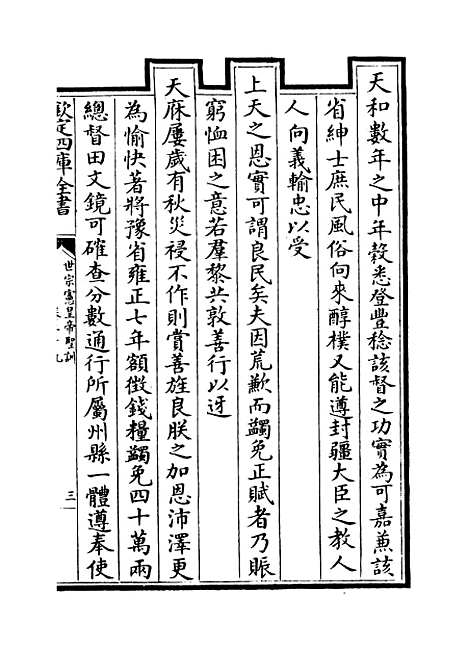 天和數年之中年榖悉登豐稔該督之功實為可嘉兼該
省紳士庶民風俗向來醇樸又能遵封疆大臣之教人
人向義輸忠以受
上天之恩實可謂良民矣夫因荒歉而蠲免正賦者乃賑
窮恤困之意若羣黎共敦善行以迓
天庥屢歲有秋災祲不作則賞善旌良朕之加恩沛澤更
為愉快著將豫省雍正七年額徴錢糧蠲免四十萬兩
總督田文鏡可確查分數通行所屬州縣一體遵奉使
欽定四庫全書
世宗憲皇帝聖訓
三